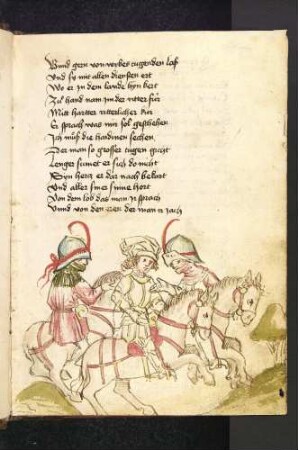 Vnnd gern von wybes tugenden laß
Vnd sy mit allen diensten ert
Wo er in dem lande hyn kert
Zů hand nam in der ritter für
Mitt hartter ritterlicher kür
Er sprach was mir sol geschehen
Ich můß die haidinen sechen
Der man so grosser tugen gicht
Lenger sumet er sich do nicht
Syn hertz er dar nach bekart
Vnd aller siner sinne hort
Von dem lob das man ir sprach
Vnnd von den eren der man ir iach